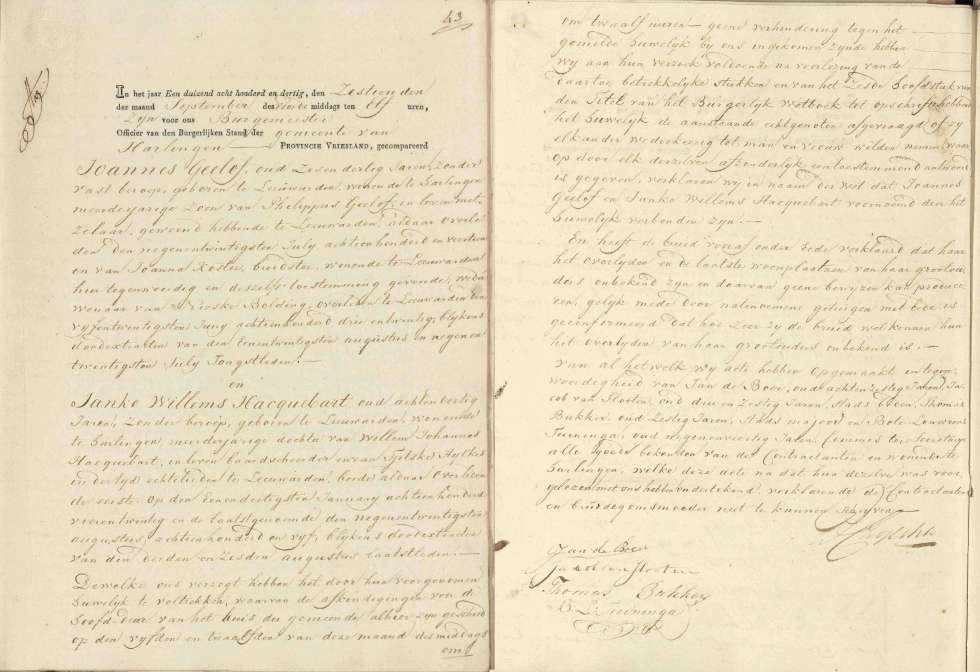 43
In het jaar Een duizend acht honderd en dertig, den Zestienden
der maand September des voormiddags ten Elf uren,
Zyn voor ons Burgemeester
Officier van den Burgerlijken Stand der gemeente van
Harlingen PROVINCIE VRIESLAND, gecompareerd
Joannes Geelof, oud Zes en dertig Jaren, Zonder
vast beroep, geboren te Leeuwarden, wonende te Harlingen
meerderjarige Zoon van Philippus Geelof, in leven met-
zelaar, gewoond hebbende te Leeuwarden, aldaar overle-
den den negenentwintigsten July achttienhonderd en veertien
en van Joanna Koster, breidster, wonende te Leeuwarden
hier tegenwoordig en deszelfs toestemming gevende, wedu-
wenaar van Frieske Bolding, overleden te Leeuwarden den
vyfentwintigsten Juny achttienhonderd drie en twintig, blykens
doodextrakten van den Eenentwintigsten augustus en negenen
twintigsten July Jongstleden.
en
Janke Willems Hacquebart, oud achtendertig
Jaren, Zonder beroep, geboren te Leeuwarden, wonende
te Harlingen, meerderjarige dochter van Willem Johannes
Hacquebart, in leven baardscheerder en van Sjitske Hylkes
in der tyd echtelieden te Leeuwarden, beide aldaar overleden
de eerste op den Eenendertigsten January achttienhonderd
vierentwintig en de laatstgenoemde den negenentwintigsten
augustus, achttienhonderd en vyf, blykens dootextrakten
van den derden en Zesden augustus laatstleden.
Dewelke ons verzogt hebben het door hun voorgenomen
huwelyk te voltrekken, waarvan de afkondigingen voor de
hoofd-deur van het huis der gemeente alhier zyn geschied
op den vyfden en twaalfden van deze maand des middags
om
om twaalf uuren geene verhindering tegen het
gemelde huwelyk by ons ingekomen zynde hebben
wy aan hun verzoek voldoende na voorlezing van de
daartoe betrekkelyke stukken en van het Zesde hoofdstuk van
den Titel van het Burgerlyk Wetboek tot opschrift hebbende
het Huwelyk de aanstaande echtgenoten afgevraagd of zy
elkander wederkeerig tot man en vrouw wilden nemen, waar
op door elk derzelven afzonderlyk een toestemmend antwoord
is gegeven, verklaren wy in naam der wet dat Joannes
Geelof en Janke Willems Hacquebart voornoemd door het
huwelyk verbonden zyn.
En heeft de bruid vooraf onder Eede verklaard dat haar
het overlyden en de laatste woonplaatsen van haar grootou-
ders onbekend zyn en daarvan geene bewyzen kan produce-
ren, gelyk mede de vier natenoemene getuigen met Eede is
geconfirmeerd dat hoe zeer zy de bruid wel kennen hun
het overlyden van haar grootouders onbekend is.
Van al hetwelk wy acte hebben opgemaakt in tegen-
woordigheid van Jan de Boer, oud achtenzestig Jaren, Ja-
cob van Slooten, oud drie en Zestig Jaren, Stads boden, Thomas
Bakker, oud Zestig Jaren, Stads majoor en Bote Louwrens
Teuninga, oud negenenveertig Jaren, Commies ter Secretarie
alle goede bekenden van de Contractanten en wonende te
Harlingen, welke deze acte na dat hun dezelve was voor-
gelezen met ons hebben ondertekend, verklarende de Contractanten
en bruidegomsmoeder niet te kunnen Schryven
Jan de Boer
Jacob van Slooten
Thomas Bakker
B. L. Teuninga